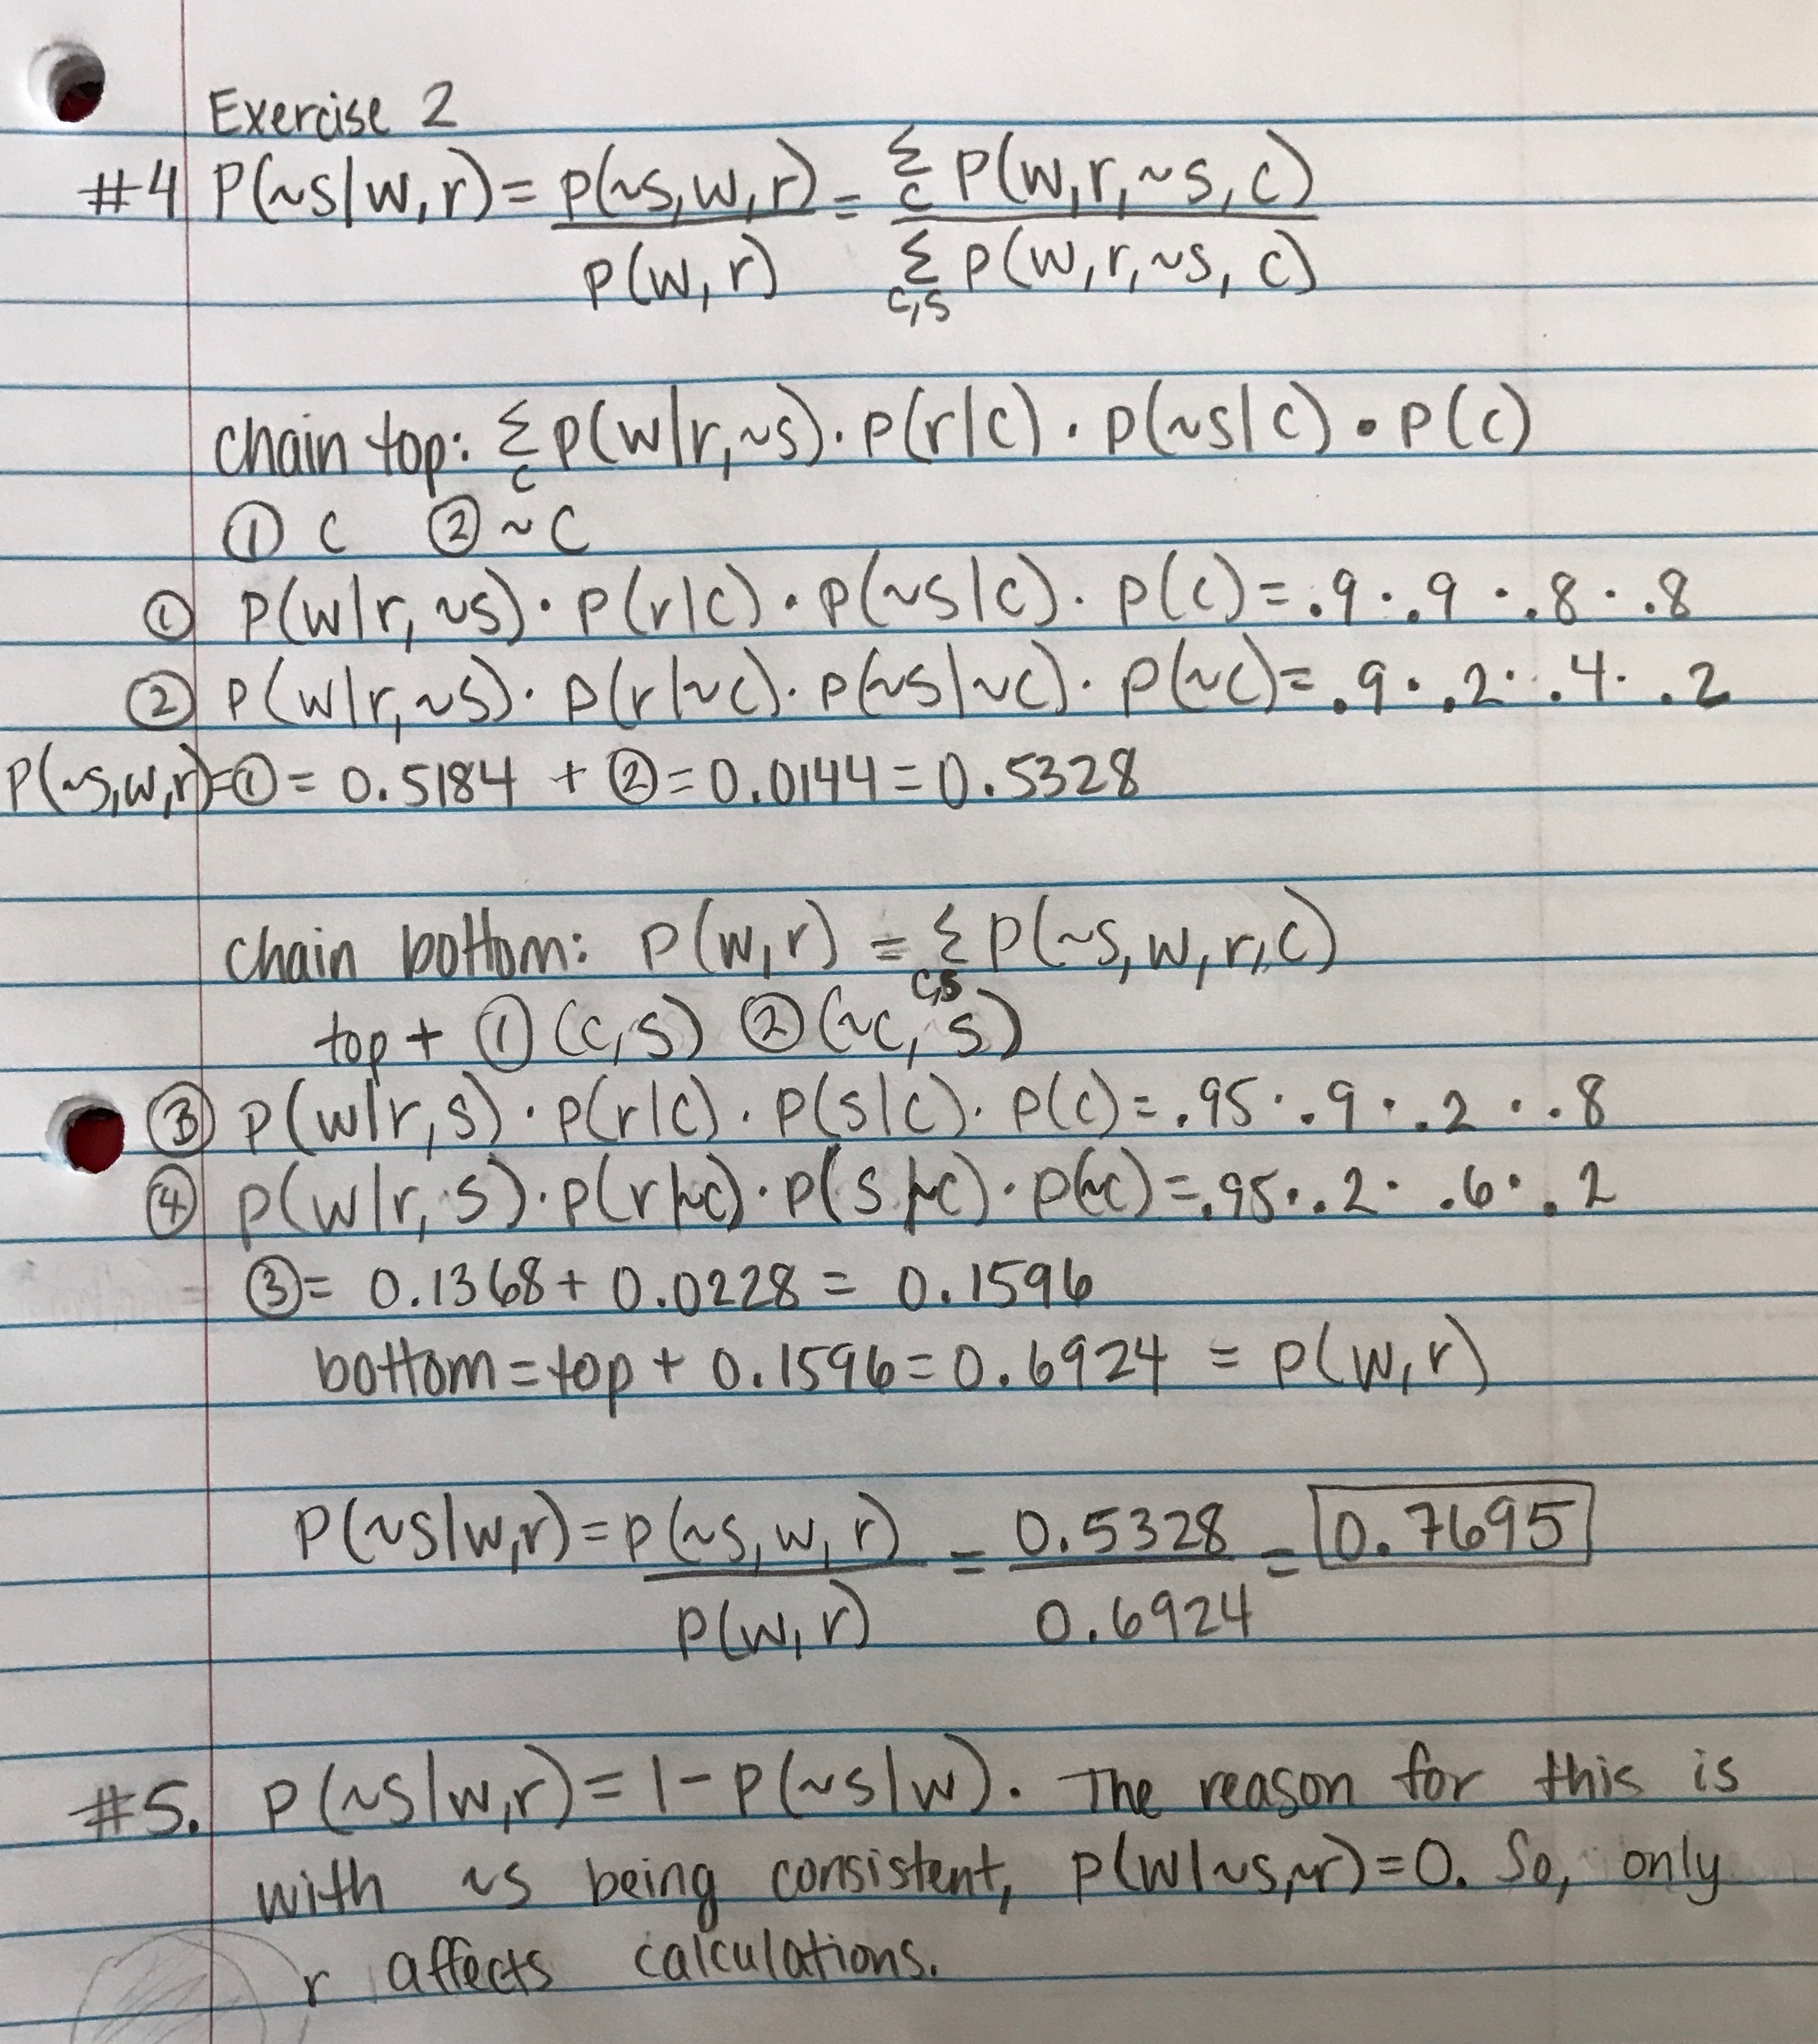 Exercise 2
#4 P(~s|w,r) = p(~s,w,r) / p(w,r) = Σ_c P(w,r,~s,c) / Σ_c,s P(w,r,~s,c)
chain top: Σ_c p(w|r,~s) · p(r|c) · p(~s|c) · p(c)
① c ② ~c
① p(w|r,~s) · p(r|c) · p(~s|c) · p(c) = .9 · .9 · .8 · .8
② p(w|r,~s) · p(r|~c) · p(~s|~c) · p(~c) = .9 · .2 · .4 · .2
P(~s,w,r) = ① = 0.5184 + ② = 0.0144 = 0.5328
chain bottom: p(w,r) = Σ_c,s p(~s,w,r,c)
top + ① (c,s) ② (~c, s)
③ p(w|r,s) · p(r|c) · p(s|c) · p(c) = .95 · .9 · .2 · .8
④ p(w|r, s) · p(r|~c) · p(s|~c) · p(~c) = .95 · .2 · .6 · .2
③ = 0.1368 + 0.0228 = 0.1596
bottom = top + 0.1596 = 0.6924 = p(w,r)
P(~s|w,r) = p(~s,w,r) / p(w,r) = 0.5328 / 0.6924 = 0.7695
#5. p(~s|w,r) = 1 - p(~s|w). The reason for this is
with ~s being consistent, p(w|~s,~r) = 0. So, only
r affects calculations.